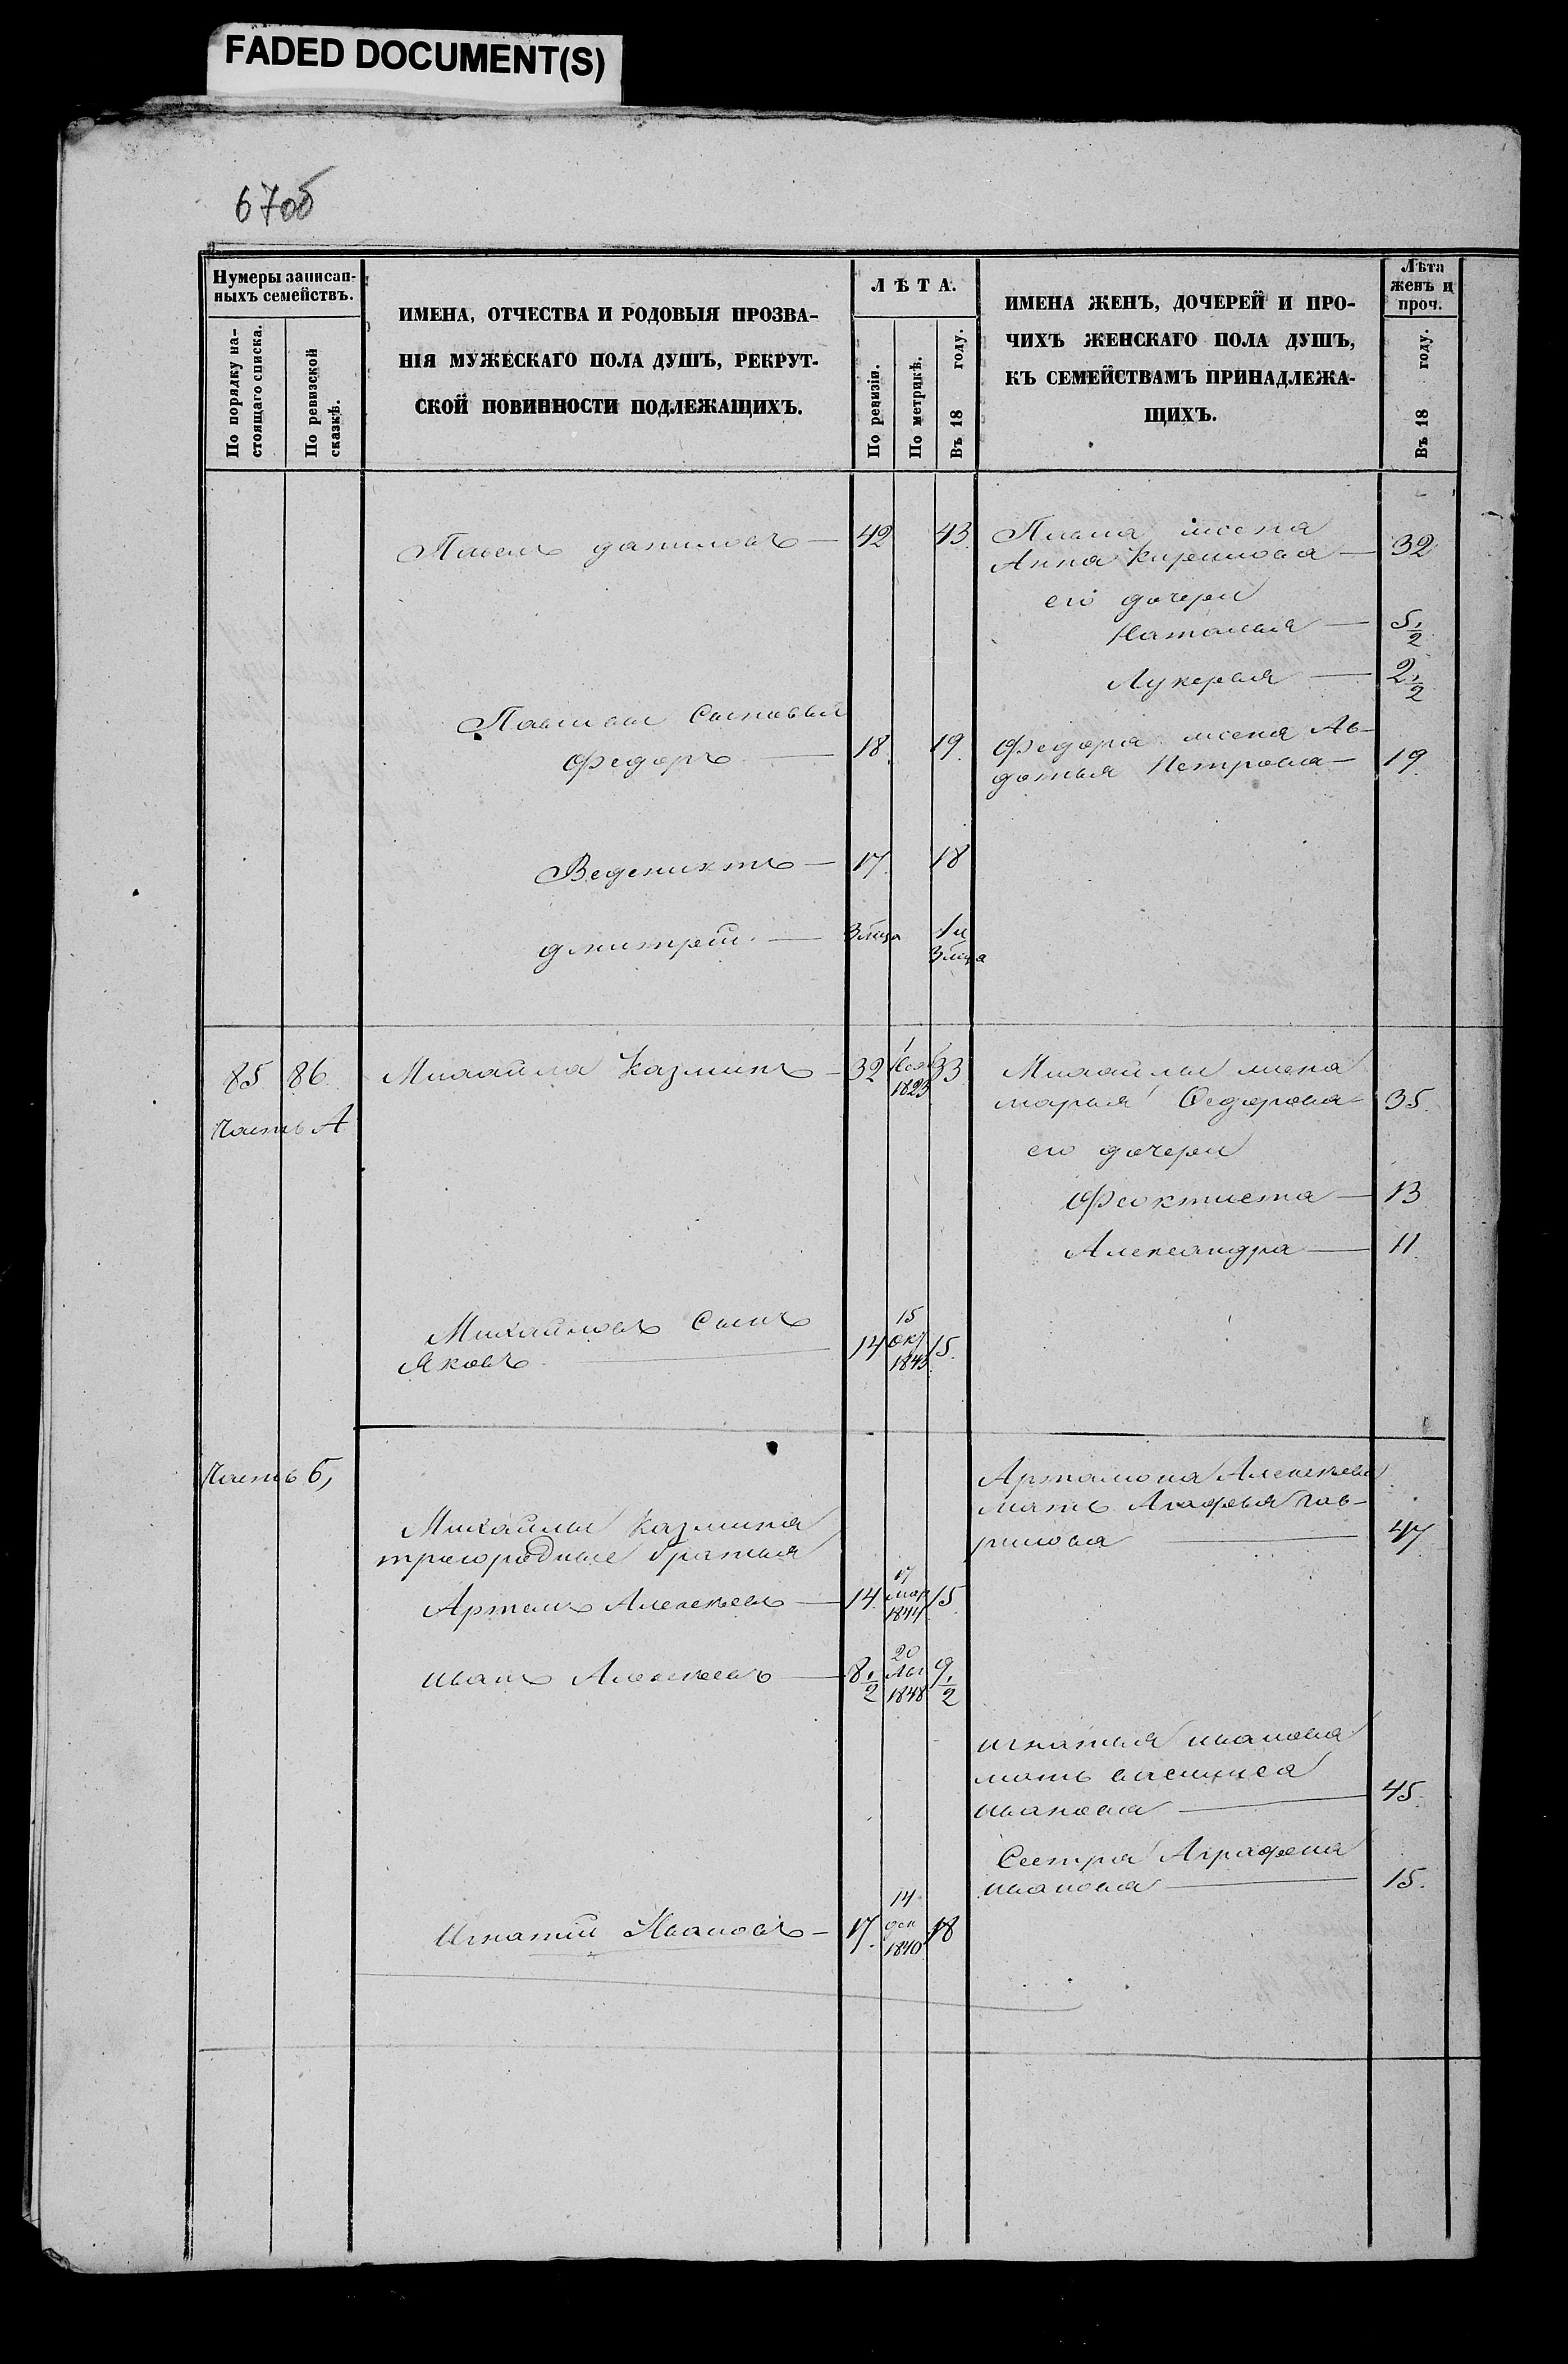 FADED DOCUMENT(S)
67об
Нумеры записан-
ныхъ семействъ.
По порядку на-
стоящаго списка.
По ревизской
сказкѣ.
ИМЕНА, ОТЧЕСТВА И РОДОВЫЯ ПРОЗВА-
НІЯ МУЖЕСКАГО ПОЛА ДУШЪ, РЕКРУТ-
СКОЙ ПОВИННОСТИ ПОДЛЕЖАЩИХЪ.
ЛѢТА.
По ревизіи.
По метрикѣ.
Въ 18 году.
ИМЕНА ЖЕНЪ, ДОЧЕРЕЙ И ПРО-
ЧИХЪ ЖЕНСКАГО ПОЛА ДУШЪ,
КЪ СЕМЕЙСТВАМЪ ПРИНАДЛЕЖА-
ЩИХЪ.
Лѣта
женъ и
проч.
Въ 18 году.
Павелъ даниловъ — 42 43
Павла жена
Анна Кирилова — 32
его дочери
Наталья — 5 1/2
Лукерья — 2 1/2
Павловы Сыновья
Федоръ — 18. 19.
Федора жена Ав-
дотья Петрова — 19.
Веденихтъ — 17. 18
дмитрей — 3 м͠ца 1 и 3 м͠ца
85 86. Михайла Казминъ — 32 1 Нояб 1823 33.
Часть А
Михайлы жена
марья Федорова 35.
его дочери
Феоктиста — 13
Александра — 11.
Михайловъ Сынъ
Яковъ — 14 15 окт 1843 15.
Часть Б,
Артамона Алексѣева
мать Агафья Гав-
рилова — 47
Михайлы Казмина
троюродные братья
Артемъ Алексѣевъ — 14. 17 мар 1844 15.
иванъ Алексѣевъ — 8 1/2 20 1848 9 1/2
игнатья иванова
мать василиса
иванова — 45.
Сестра Аграфена
иванова — 15.
Игнатій Ивановъ — 17. 14 дек 1840 18